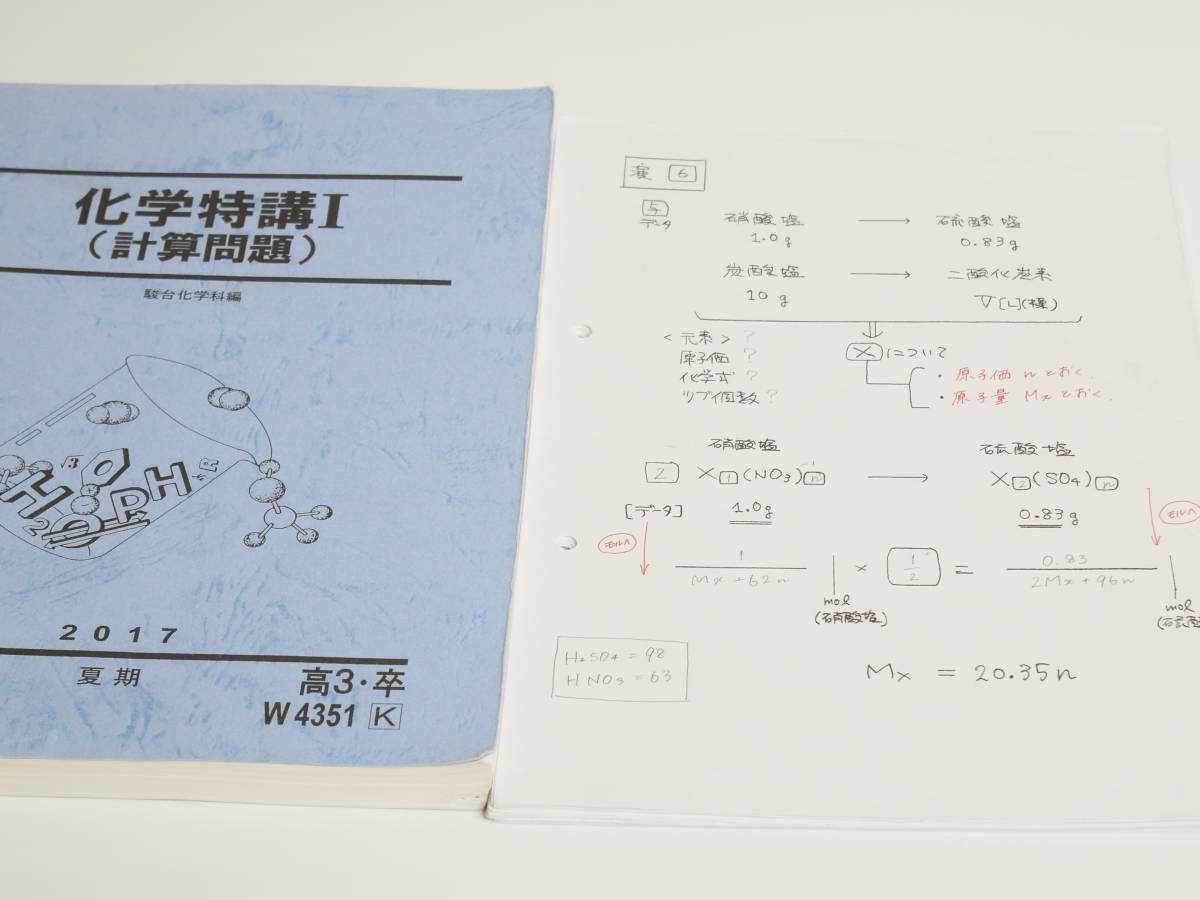 化学特講I
(計算問題)
駿台化学科編
2017
夏期
高3・卒
W4351 K
演 6
与
データ
硝酸塩 → 硫酸塩
1.0g 0.83g
炭酸塩 → 二酸化炭素
10g V[L](標)
<元素> ?
原子価 ?
化学式 ?
ツブ個数 ?
Xについて
・原子価 n とおく.
・原子量 Mx とおく.
硝酸塩 硫酸塩
2 X1(NO3)n → X2(SO4)n
[データ] 1.0g 0.83g
モルへ モルへ
1/(Mx+62n) × 1/2 = 0.83/(2Mx+96n)
mol mol
(硝酸塩)
H2SO4 = 98
HNO3 = 63
Mx = 20.35n